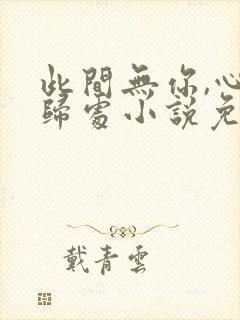 此間無你,心
歸處小說免
戴青雲